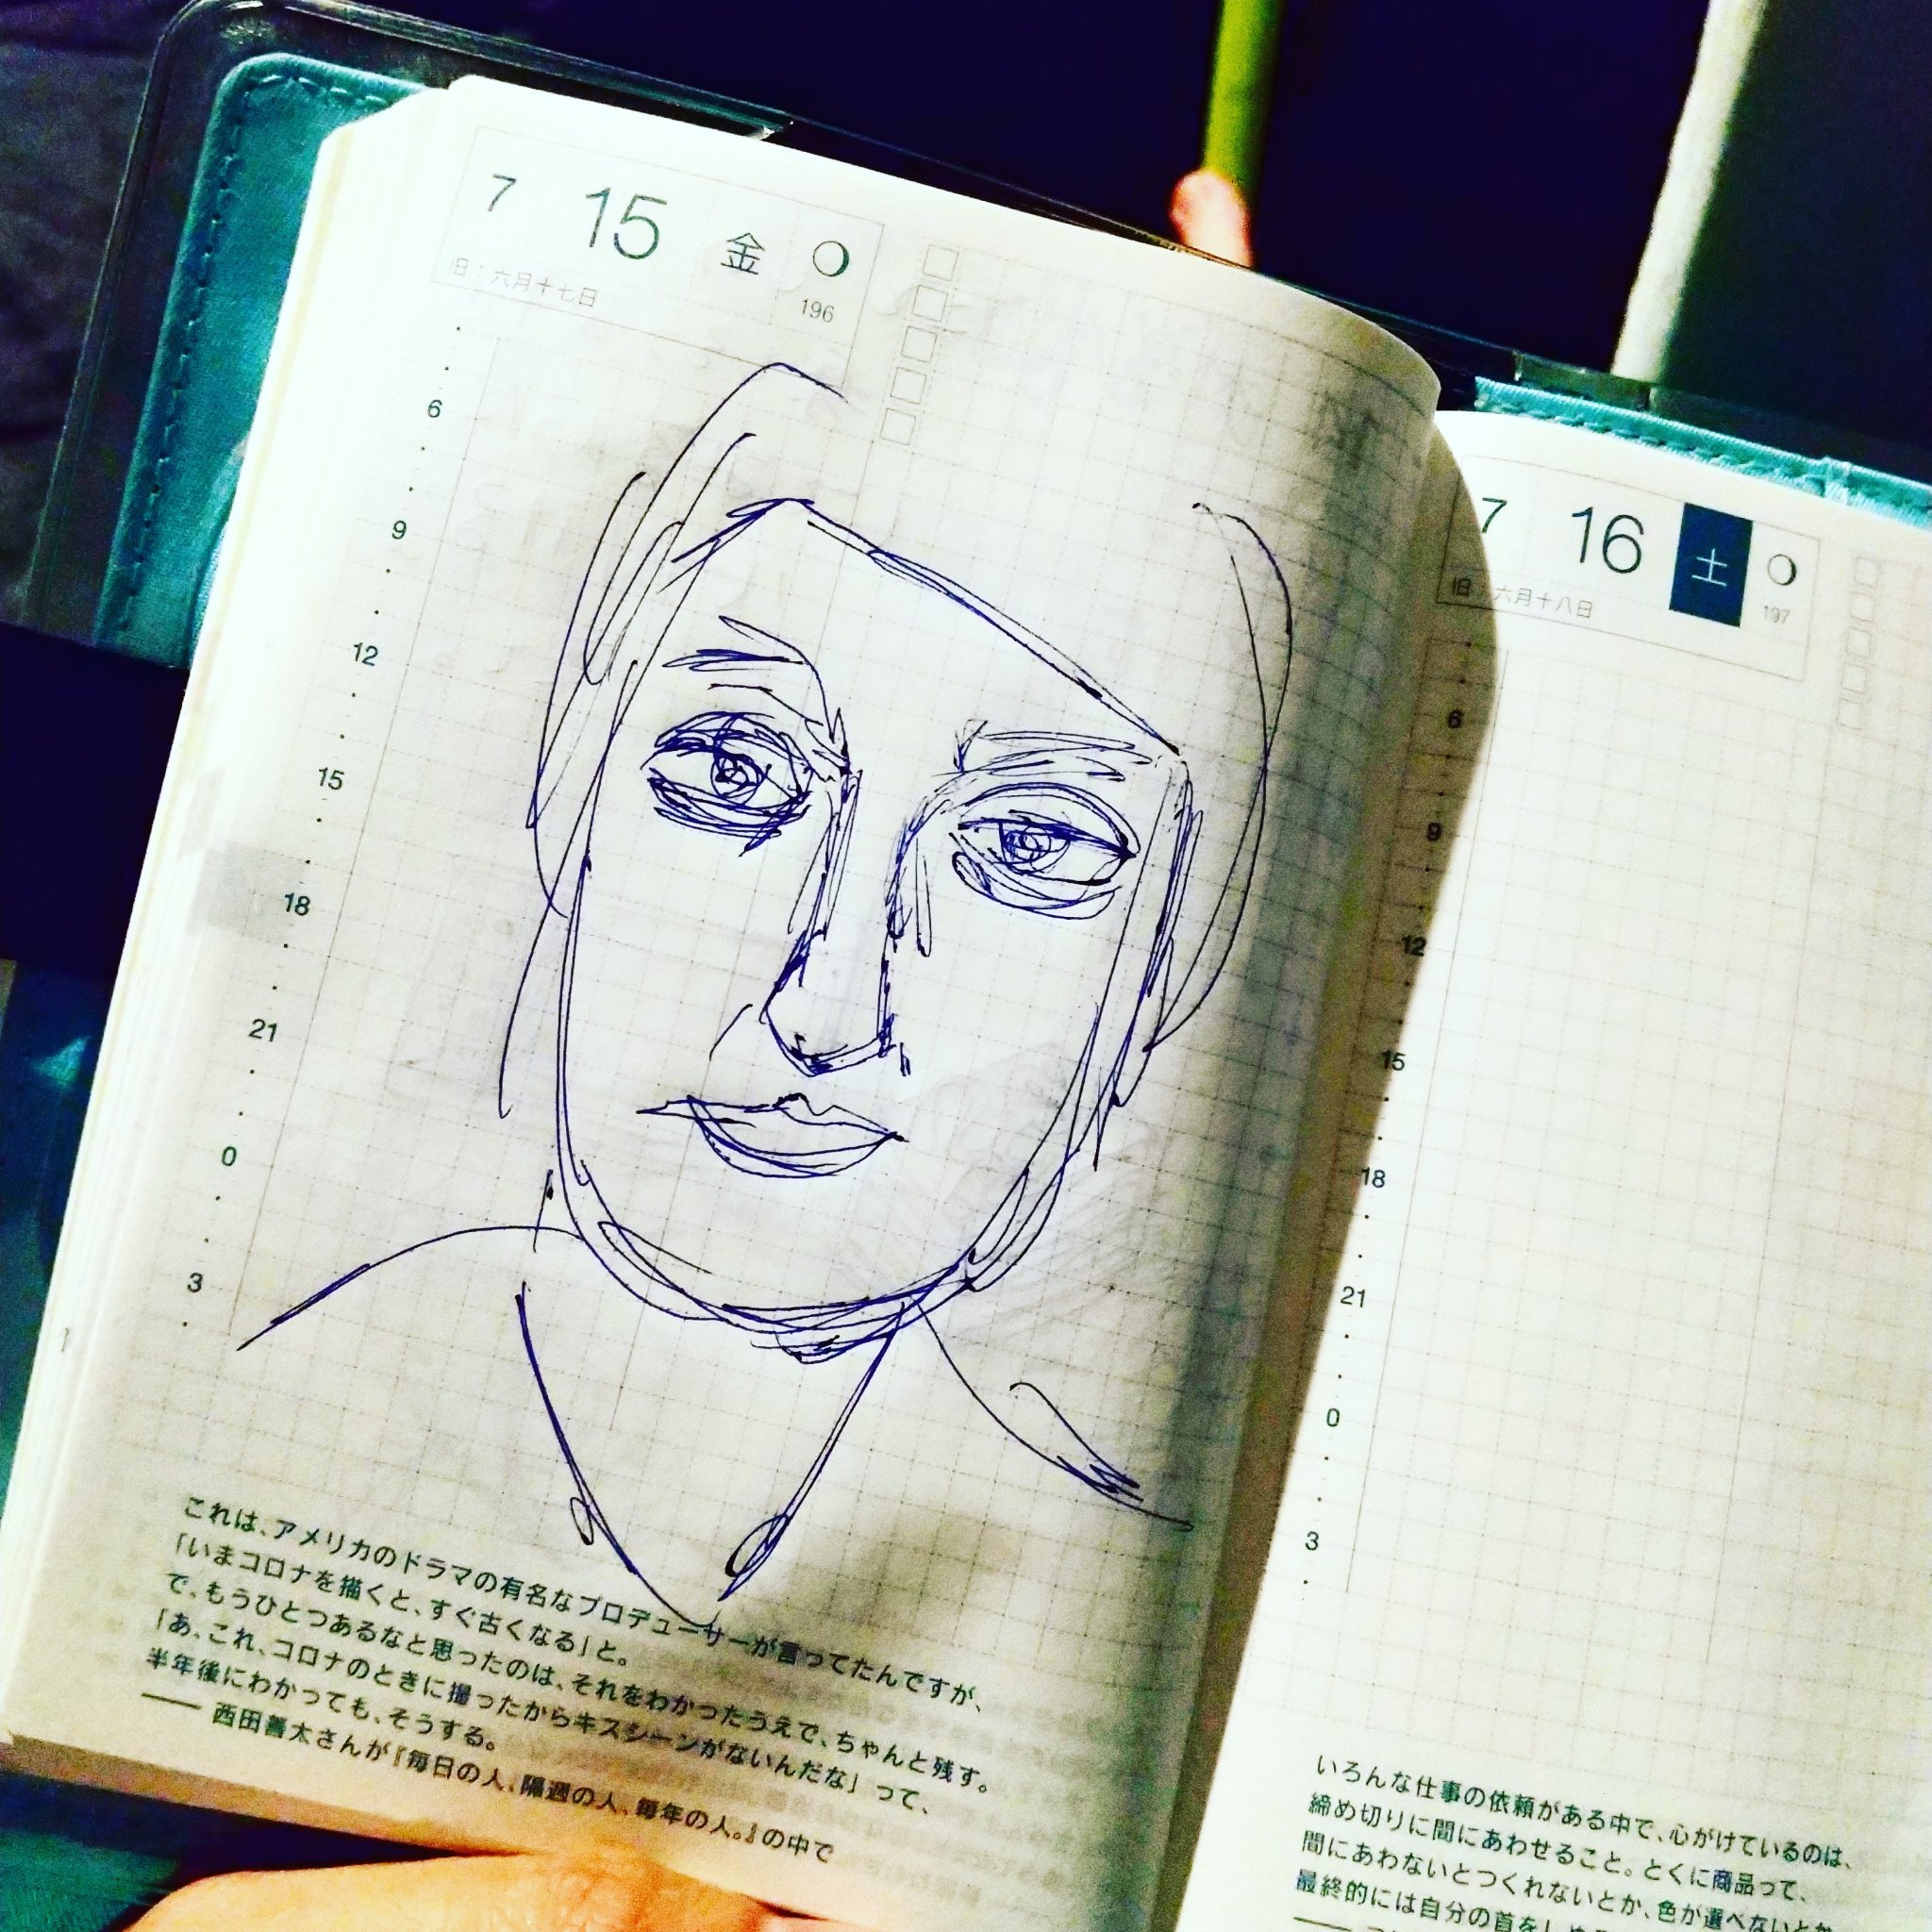 7 15 金
旧:六月十七日 196
6
9
12
15
18
21
0
3
これは、アメリカのドラマの有名なプロデューサーが言ってたんですが、
「いまコロナを描くと、すぐ古くなる」と。
で、もうひとつあるなと思ったのは、それをわかったうえで、ちゃんと残す。
「あ、これ、コロナのときに撮ったからキスシーンがないんだな」って、
半年後にわかっても、そうする。
—— 西田善太さんが『毎日の人、隔週の人、毎年の人。』の中で
7 16 土
旧:六月十八日 197
6
9
12
15
18
21
0
3
いろんな仕事の依頼がある中で、心がけているのは、
締め切りに間にあわせること。とくに商品って、
間にあわないとつくれないとか、色が選べないとか
最終的には自分の首をしめ